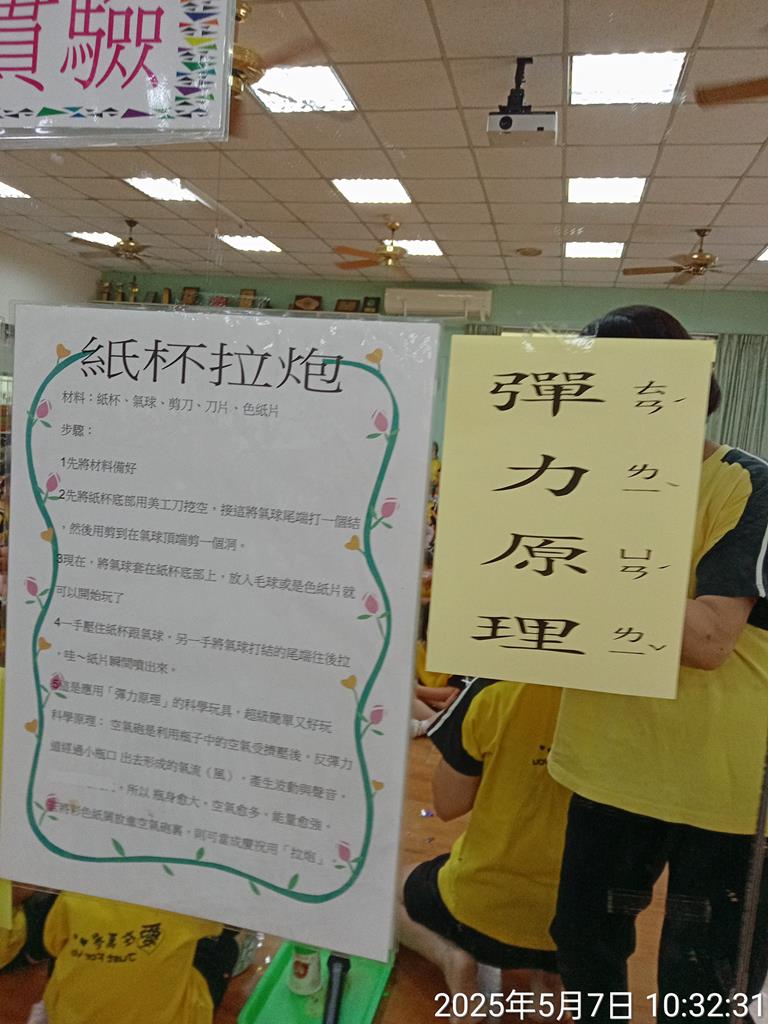 實驗
紙杯拉炮
材料：紙杯、氣球、剪刀、刀片、色紙片
步驟：
1先將材料備好
2先將紙杯底部用美工刀挖空，接這將氣球尾端打一個結
，然後用剪到在氣球頂端剪一個洞。
3現在，將氣球套在紙杯底部上，放入毛球或是色紙片就
可以開始玩了
4一手壓住紙杯跟氣球，另一手將氣球打結的尾端往後拉
，哇～紙片瞬間噴出來。
5這是應用「彈力原理」的科學玩具，超級簡單又好玩
科學原理： 空氣砲是利用瓶子中的空氣受擠壓後，反彈力
道經過小瓶口 出去形成的氣流（風），產生波動與聲音，
，所以 瓶身愈大，空氣愈多，能量愈強。
將彩色紙屑放進空氣砲裏，則可當成慶祝用「拉炮」
彈 ㄊㄢˊ
力 ㄌㄧˋ
原 ㄩㄢˊ
理 ㄌㄧˇ
愛
JUST FOR YO
2025年5月7日 10:32:31